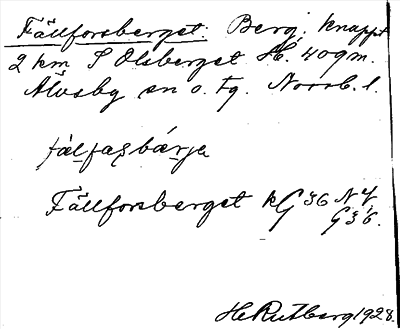 Fällforsberget. Berg, knappt
2 km S Olsberget H. 409m.
Älvsby sn o. tg. Norrb. l.
Fällforsberget kG 36 N 4
G 36.
H. Rutberg 1928.